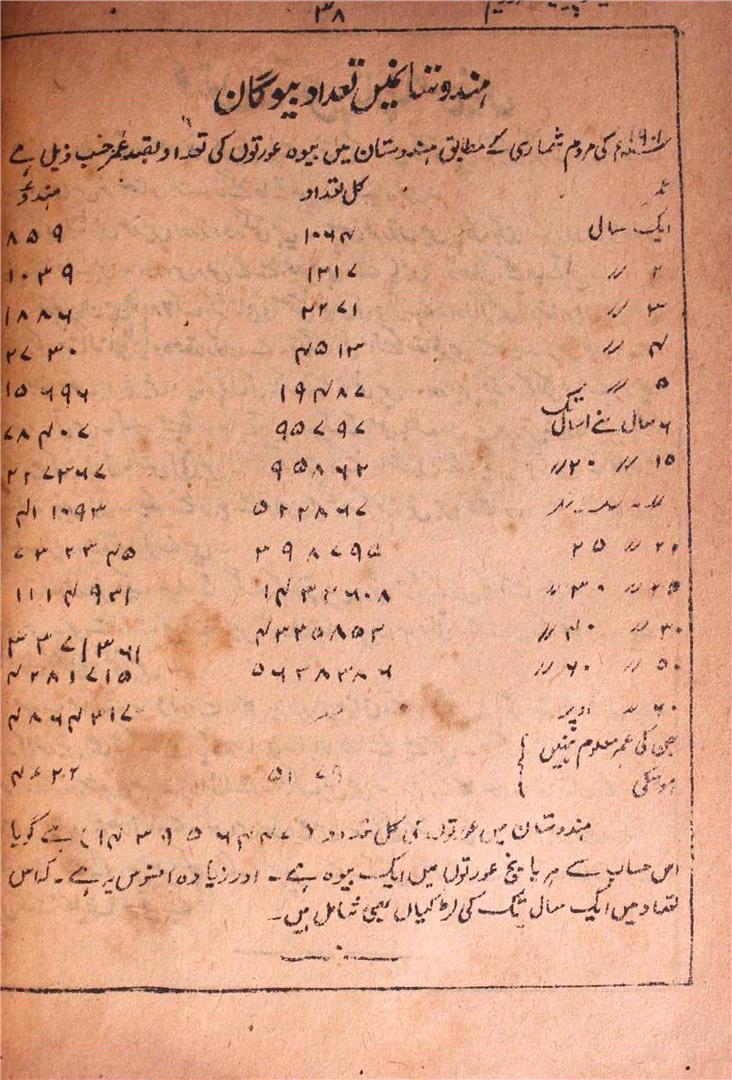 ۳۸
ہندوستانمیں تعداد بیوگان
۱۹۰۱ء کی مردم شماری کے مطابق ہندوستان میں بیوہ عورتوں کی تعداد بقید عمر حسب ذیل ہے
عمر کل تعداد ہندو
ایک سال ۱۰۶۴ ۸۵۹
۲ ؍؍ ۱۲۱۷ ۱۰۳۹
۳ ؍؍ ۲۲۷۱ ۱۸۸۶
۴ ؍؍ ۴۵۱۳ ۲۷۳۰
۵ ؍؍ ۱۹۴۸۷ ۱۵۶۹۶
۶ سال سے سال تک ۹۵۷۹۷ ۷۸۴۰۷
۱۵ ؍؍ ۲۰ ؍؍ ۹۵۸۶۲ ۲۲۷۳۶۷
۵۲۲۸۶۷ ۴۱۱۰۹۳
۲۰ ؍؍ ۲۵ ۳۹۸۷۹۵ ۷۳۲۳۴۵
۲۵ ؍؍ ۳۰ ؍؍ ۱۴۳۲۶۰۸ ۱۱۱۴۹۲۱
۳۰ ؍؍ ۴۰ ؍؍ ۴۲۲۵۸۵۲ ۳۳۷۱۳۶۱
۵۰ ؍؍ ۶۰ ؍؍ ۵۶۲۸۲۸۶ ۴۲۸۱۷۱۵
۶۰ ؍؍ اوپر ؍؍ ۴۸۶۴۲۱۷
جن کی عمر معلوم نہیں
ہوسکی ۵۱۷۹ ۴۰۲۲
ہندوستان میں عورتوں کی کل تعداد ( ۱۴۳۹۵۶۴۴۷ ) ہے گویا
اس حساب سے ہر پانچ عورتوں میں ایک بیوہ ہے۔ اور زیادہ افسوس یہ ہے۔ کہ اس
تعداد میں ایک سال تک کی لڑکیاں بھی شامل ہیں۔